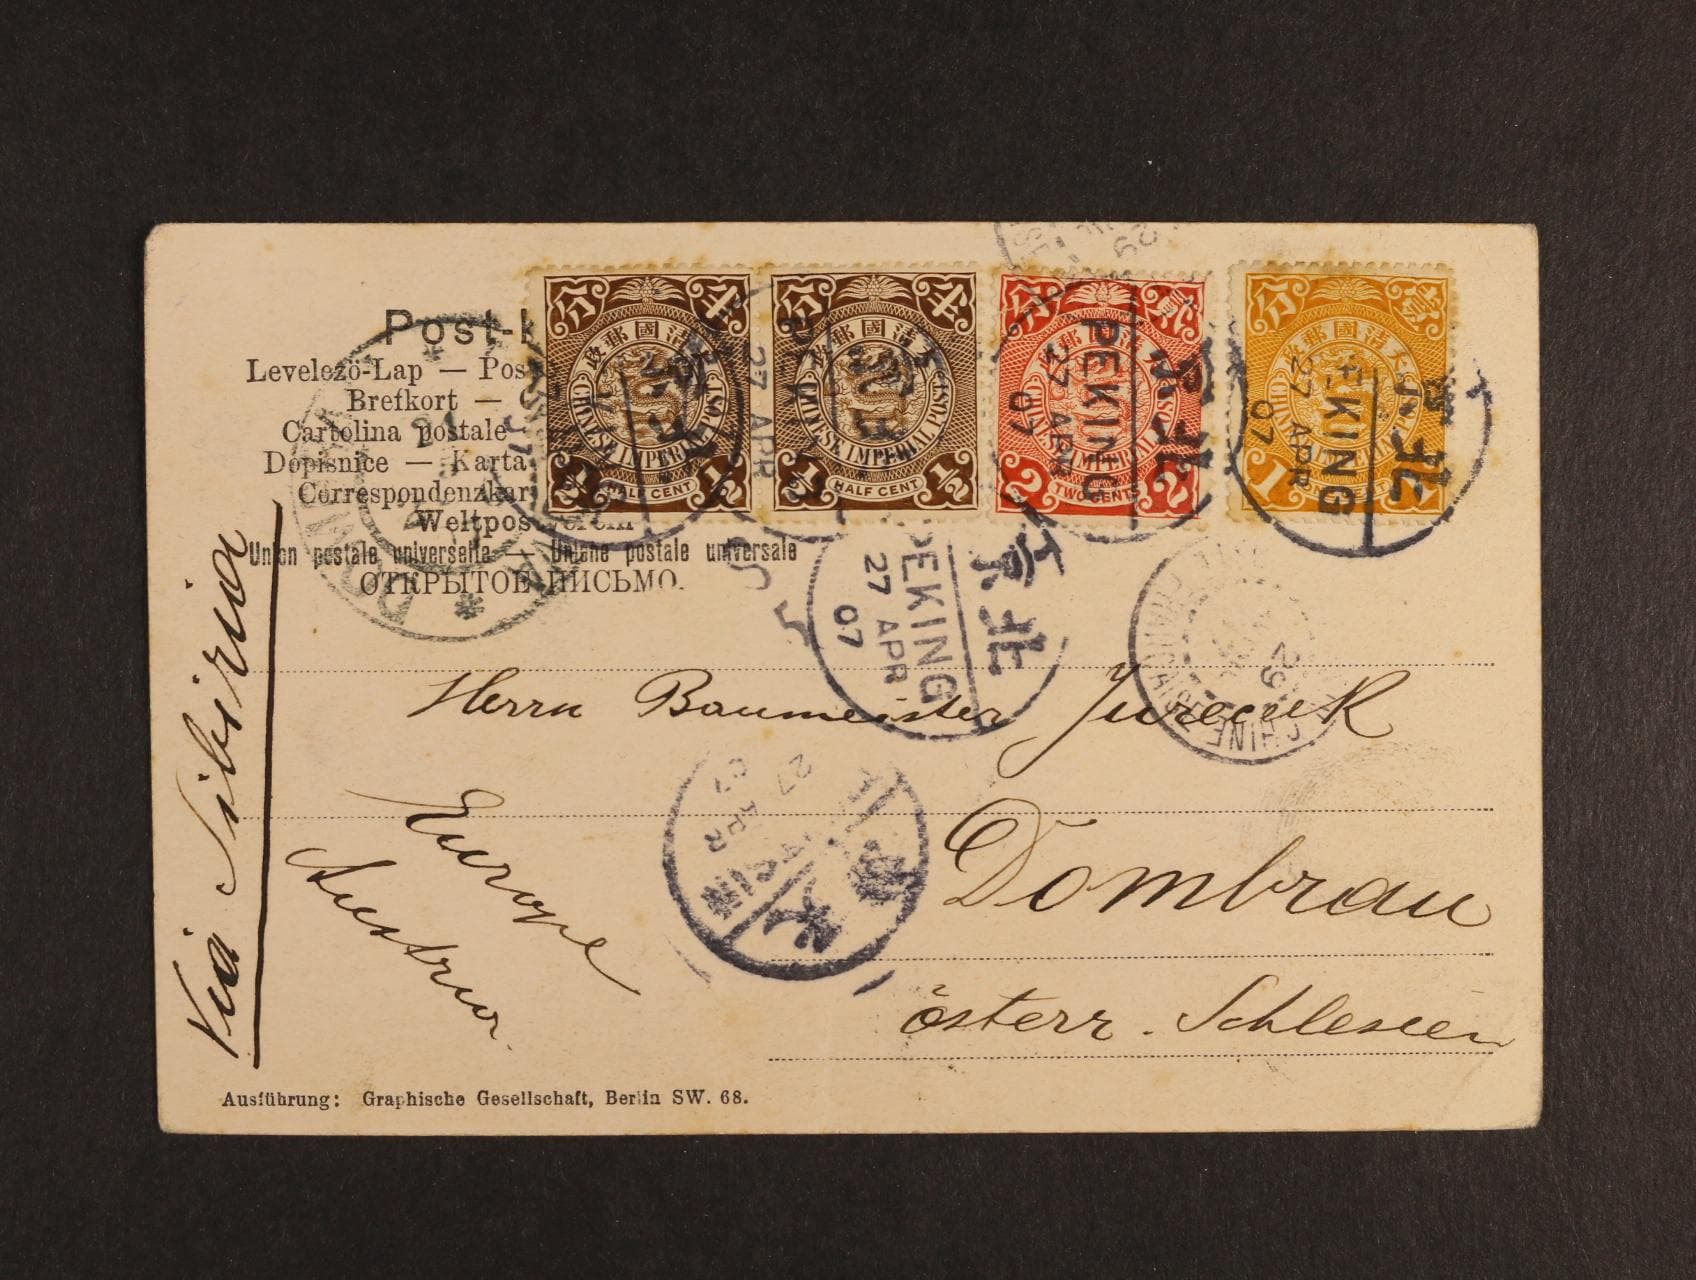 Post-k
Levelező-Lap — Pos
Brefkort —
Cartolina postale
Dopisnice — Karta
Correspondenzkar
Weltpostverein
Union postale universelle — Unione postale universale
ОТКРЫТОЕ ПИСЬМО.
大清國郵政
CHINESE IMPERIAL POST
HALF CENT
1/2
大清國郵政
CHINESE IMPERIAL POST
HALF CENT
1/2
2
TWO CENTS
2
1
北京
PEKING
27 APR
07
北京
PEKING
27 APR
07
北京
PEKING
27 APR
07
27 APR
07
29
CHINE
Via Sibiria
Herrn Baumeister Jureczek
Europe
Austria
Dombrau
österr. Schlesien
Ausführung: Graphische Gesellschaft, Berlin SW. 68.